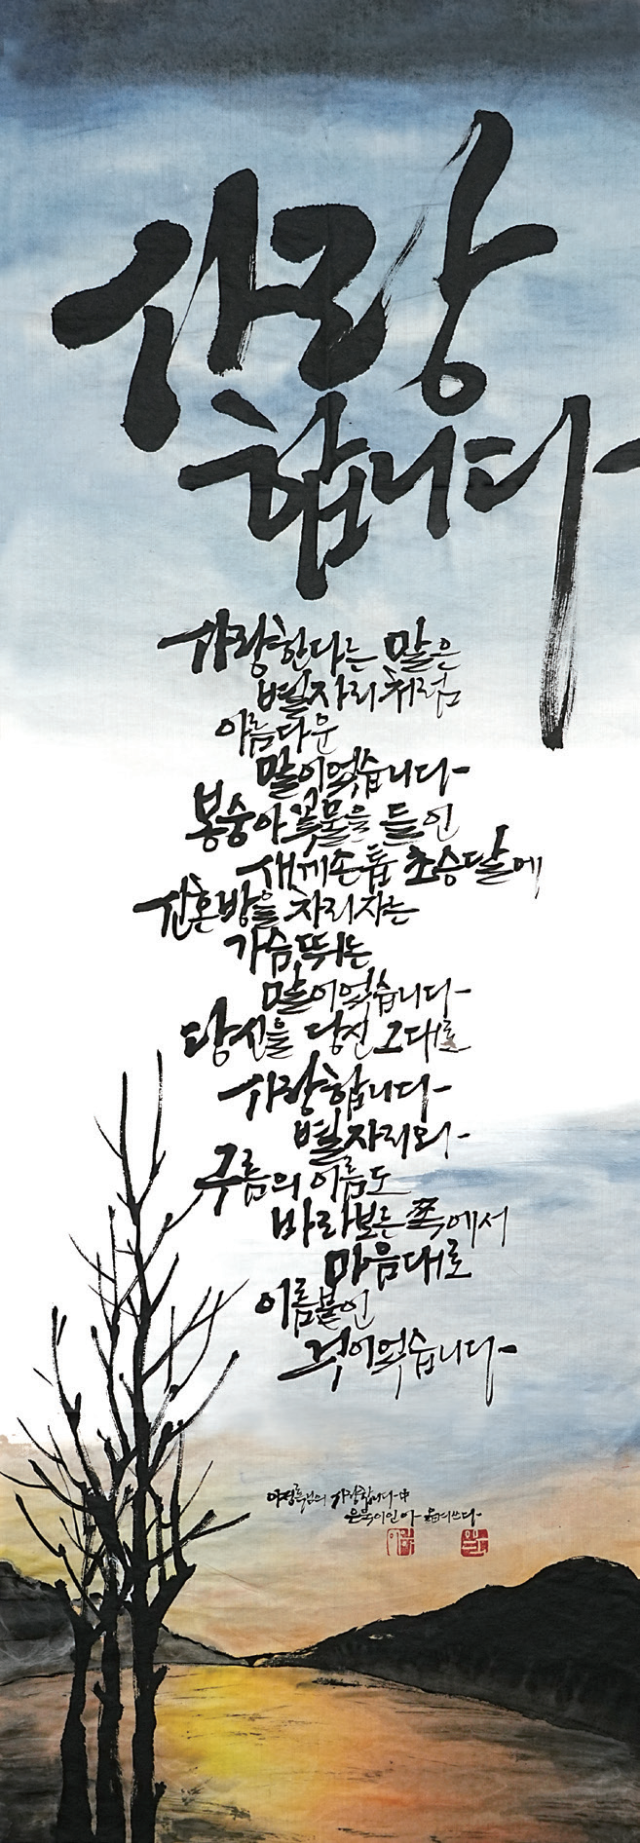 사랑
합니다
사랑한다는 말은
별자리처럼
아름다운
말이었습니다
봉숭아 꽃물을 들인
새끼손톱 초승달에
신혼방을 차리자는
가슴 뛰는
말이었습니다
당신을 당신 그대로
사랑합니다
별자리와
구름의 이름도
바라보는 쪽에서
마음대로
이름붙인
것이었습니다
이정록님의 사랑합니다 中